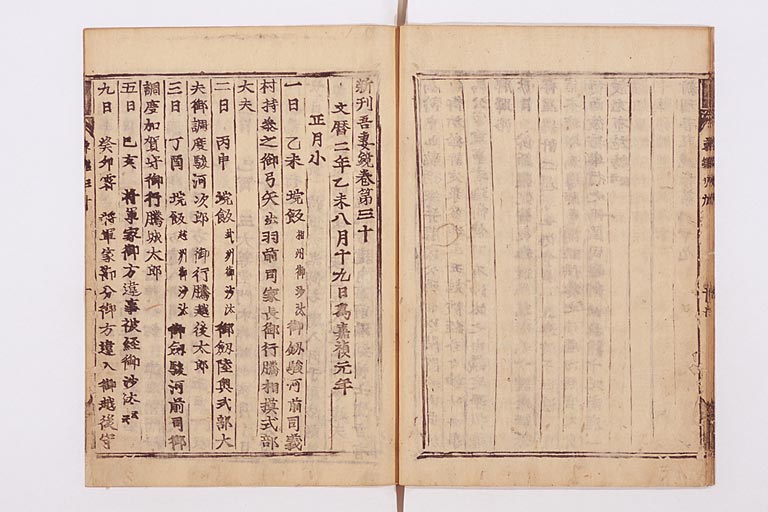 新刊吾妻鏡卷第三十
文曆二年乙未八月十九日爲嘉禎元年
正月小
一日 乙未 垸飯 相州御沙汰 御釼駿河前司義
村持參之御弓矢出羽前司家長御行騰相摸式部
大夫
二日 丙申 垸飯 武州御沙汰 御釼陸奥式部大
夫御調度駿河次郎 御行騰越後太郎
三日 丁酉 垸飯 越州御沙汰 御釼駿河前司御
調度加賀守御行騰城太郎
五日 己亥 將軍家御方違事被経御沙汰云云
九日 癸卯霽 將軍家節分御方違入御越後守